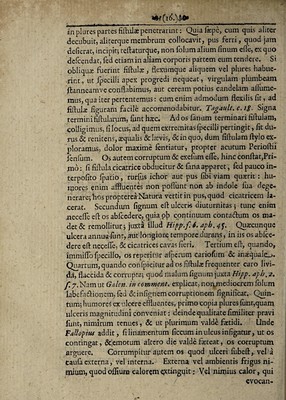 (16.)
in plures partes fistulæ penetrarint: Quia sæpè, cum quis aliter
decubuit, aliterque membrum collocavit, pus ferri, quod jam
desierat, incipit, testaturque, non solum alium sinum esse, ex quo
descendat, sed etiam in aliam corporis partem eum tendere. Si
obliquæ fuerint fistulæ, flexumque aliquem vel plures habue-
rint, ut specilli apex progredi nequeat, virgulam plumbeam
stanneamve constabimus, aut cereum potius candelam assume-
mus, qua iter pertentemus: cum enim admodum flexilis sit, ad
fistulæ figuram facilè accommodabitur. Tagault. c. 18 Signa
termini fistularum, sunt hæc. Ad os sanum terminari fistulam,
colligimus, si locus, ad quem extremitas specilli pertingit, sit du-
rus & renitens, æqualis & levis, & in quo, dum fistulam stylo ex-
ploramus, dolor maximè sentiatur, propter acutum Periostii
sensum. Os autem corruptum & exesum esse, hinc constat, Pri-
mò: si fistula cicatrice obducitur & sana apparet, sed pauco in-
terposito spatio, rursus ichor aut pus sibi viam quærit: hu-
mores enim affluentes non possunt non ab indole sua dege-
nerare; hos propterea Natura vertit in pus, quod cicatricem la-
cerat. Secundum signum est ulceris diuturnitas; tunc enim
necesse est os abscedere, quia ob continuum contactum os ma-
det & remollitur; juxtà illud Hipp. s. 6. aph. 45. Quæcunque
ulcera annua sunt, aut longiore tempore durant, in iis os absce-
dere est necesse, & cicatrices cavas fieri. Tertium est, quando,
immisso specillo, os reperitur asperum cariosum & inæquale.
Quartum, quando conspicitur ad os fistulæ frequenter caro livi-
da, flaccida & corrupta; quod malum signum juxta Hipp. aph. 2.
s. 7. Nam ut Galen. in comment. explicat, non mediocrem solum
labefactionem, sed & insignem corruptionem significat. Quin-
tum; humores ex ulcere effluentes, primo copia plures sunt, quam
ulceris magnitudini conveniat: deinde qualitate similiter pravi
sunt, nimirum tenues, & ut plurimum valdè fœtidi. Unde
Fallopius addit, si linamentum siccum in ulcus infigatur, ut os
contingat, & emotum altero die valdè fœteat, os corruptum
arguere. Corrumpitur autem os quod ulceri subest, vel à
causa externa, vel interna. Externa vel ambientis frigus ni-
mium, quod ossium calorem extinguit: Vel nimius calor, qui
evocan-